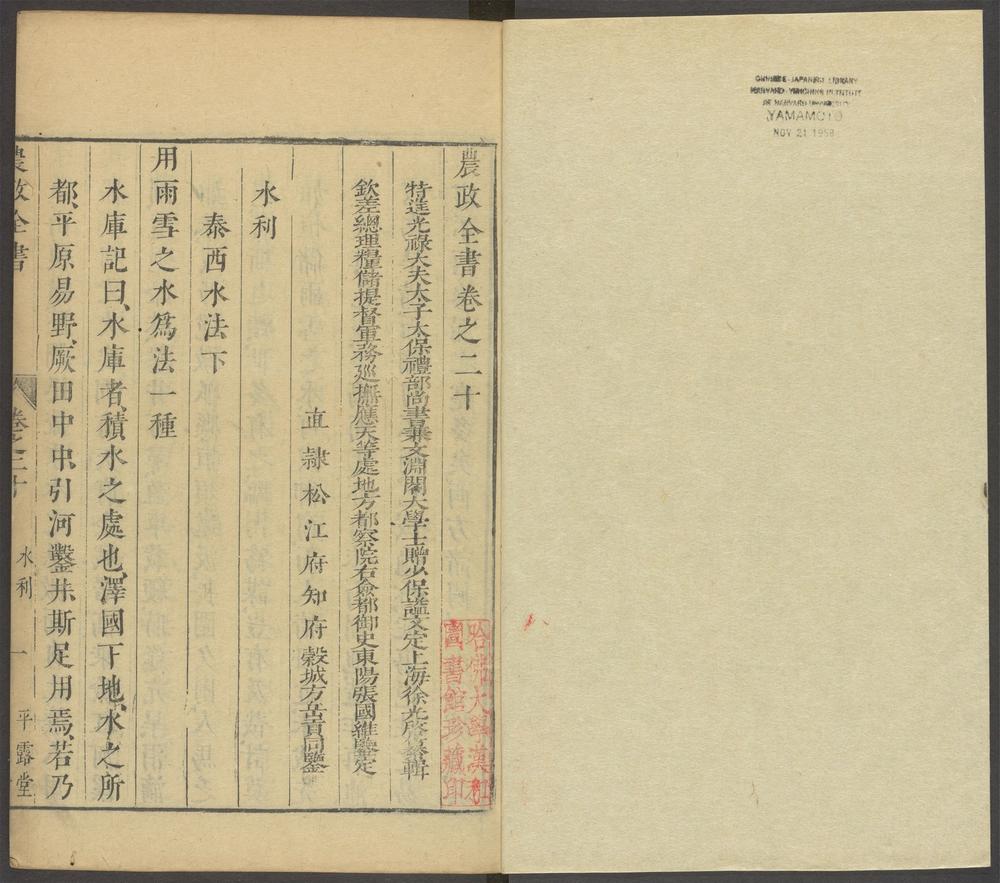 農政全書卷之二十
特進光祿大夫太子太保禮部尚書兼文淵閣大學士贈少保諡文定上海徐光啓纂輯
欽差總理糧儲提督軍務巡撫應天等處地方都察院右僉都御史東陽張國維鑒定
直隸松江府知府穀城方岳貢同鑒
水利
泰西水法下
用雨雪之水爲法一種
水庫記曰、水庫者、積水之處也、澤國下地、水之所
都、平原易野、厥田中中、引河鑿井、斯足用焉、若乃
農政全書
卷之二十
水利
一
平露堂
哈佛大學漢和
圖書館珍藏印
CHINESE-JAPANESE LIBRARY
HARVARD-YENCHING INSTITUTE
AT HARVARD UNIVERSITY
YAMAMOTO
NOV 21 1958